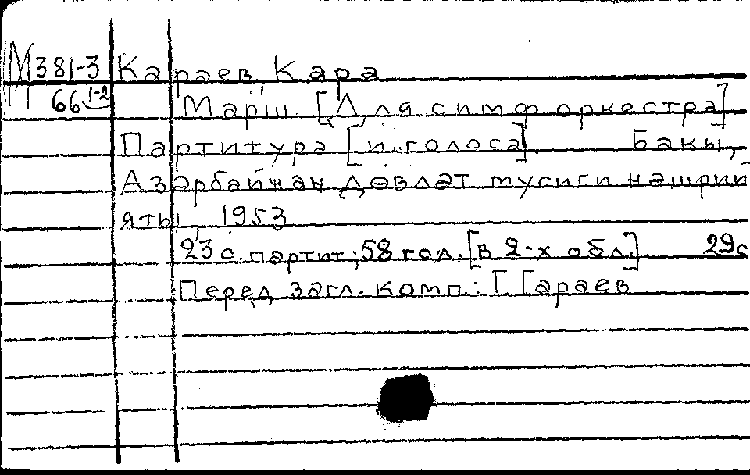 М 381-3 Караев Кара
66 1-2 Марш. [Для симф оркестра]
Партитура [и голоса] Бакы,
Азәрбайҹан дөвләт мусиги нәшрий
яты, 1953
23 с. партит; 58 гол. [в 2-х обл.] 29с
Перед загл. комп: Г Гараев